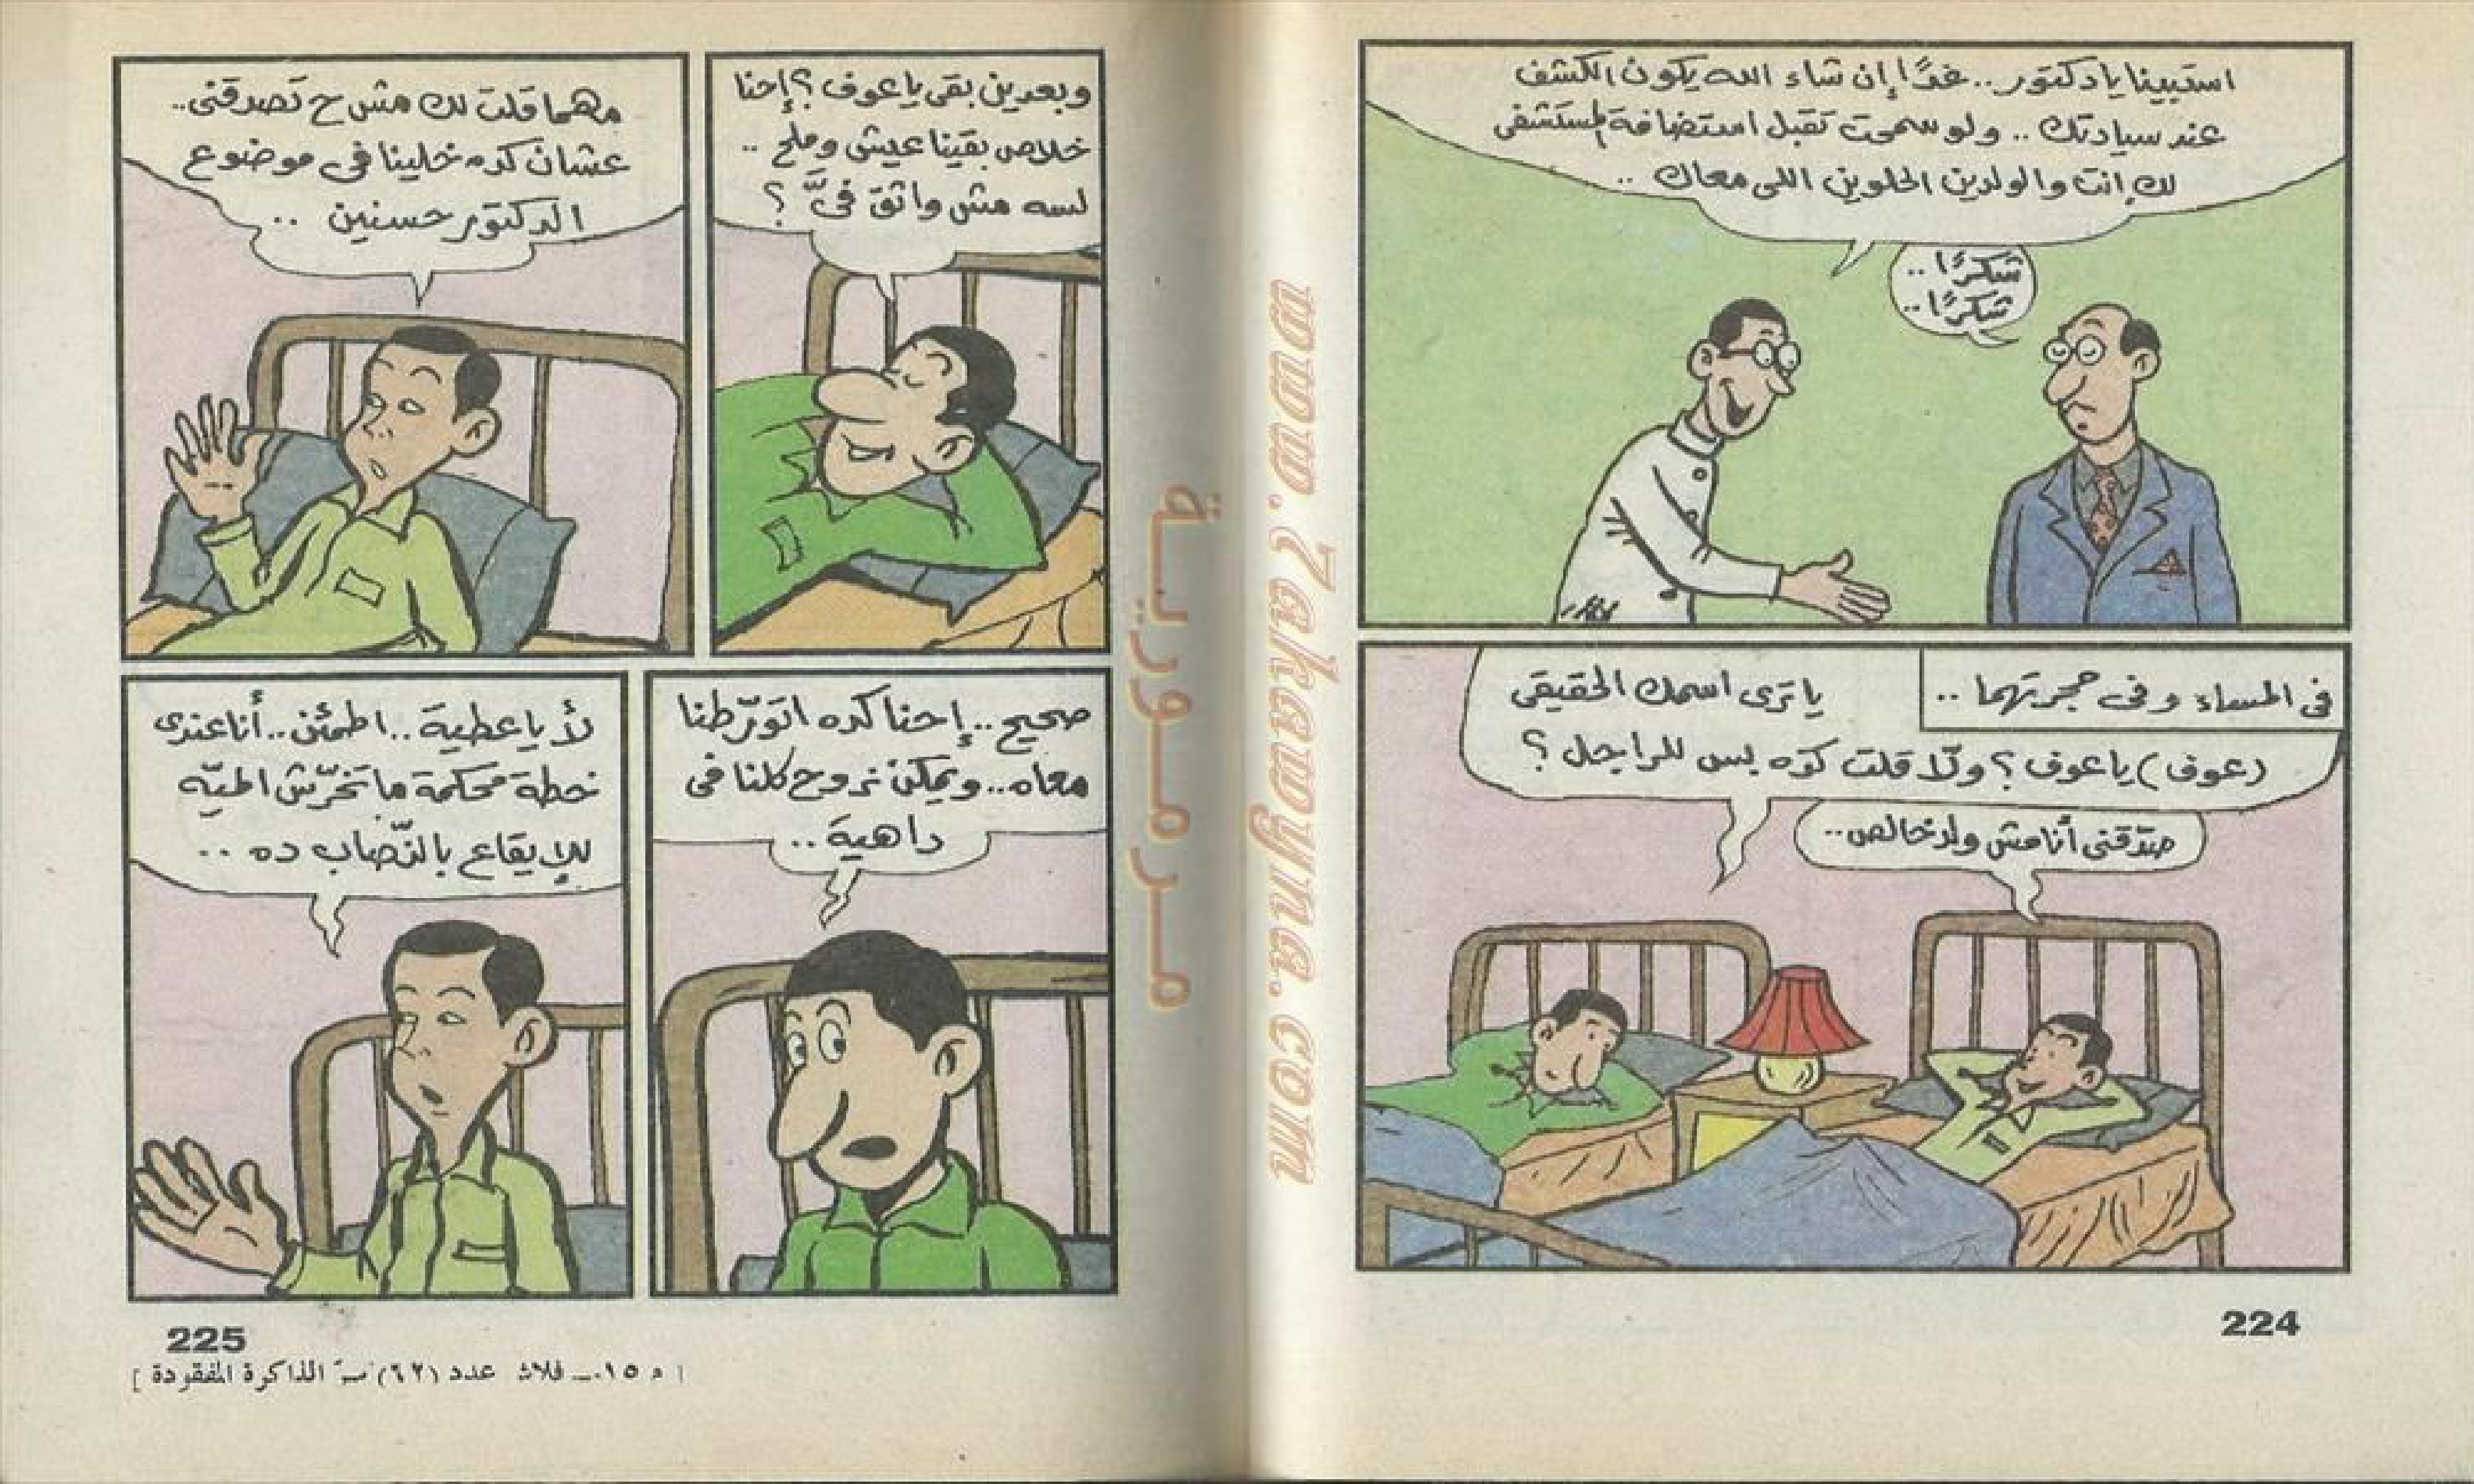 استبينا يا دكتور.. غدًا إن شاء الله يكون الكشف
عند سيادتك.. ولو سمحت تقبل استضافة المستشفى
لك إنت والولدين الحلوين اللى معاك..
شكرًا..
شكرًا..
فى المساء وفى حجرتهما..
يا ترى اسمك الحقيقى
(عوف) يا عوف؟ ولّا قلت كده بس للراجل؟
صدّقنى أنا مش ولد خالص..
224
وبعدين بقى يا عوف؟ إحنا
خلاص بقينا عيش وملح..
لسه مش واثق فىَّ؟
مهما قلت لك مش ح تصدقنى..
عشان كده خلينا فى موضوع
الدكتور حسنين..
صحيح.. إحنا كده اتورّطنا
معاه.. ويمكن نروح كلنا فى
داهية..
لأ يا عطية.. اطمئن.. أنا عندى
خطة محكمة ما تخرّش الميّه
للإيقاع بالنّصاب ده..
225
[ م ١٥ - فلاش عدد (٦٢) الذاكرة المفقودة ]
مرمورية
www.7akawyna.com